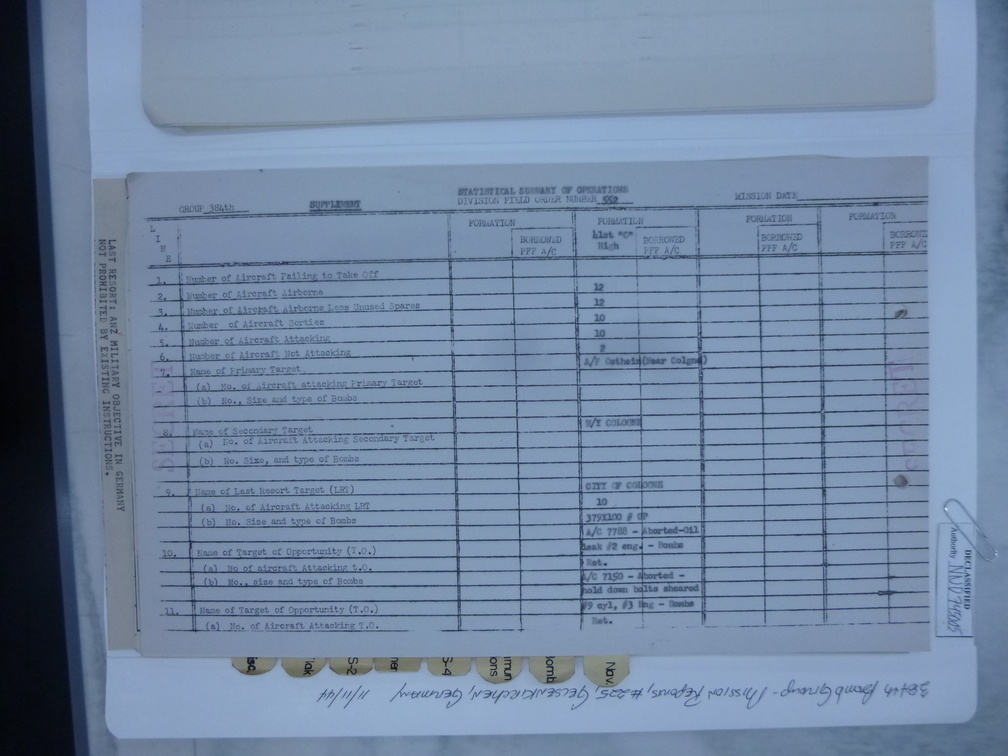 STATISTICAL SUMMARY OF OPERATIONS
GROUP 384th SUPPLIMENT DIVISION FIELD ORDER NUMBER MISSION DATE
LINE
FORMATION FORMATION FORMATION FORMATION
High
BORROWED BORROWED BORROWED BORROWE
PFF A/C PFF A/C PFF A/C PFF A/C
1. Number of Aircraft Failing to Take Off
2. Number of Aircraft Airborne 12
3. Number of Aircraft Airborne Less Unused Spares 12
4. Number of Aircraft Sorties 10
5. Number of Aircraft Attacking 10
6. Number of Aircraft Not Attacking 2
7. Name of Primary Target A/F Ostheim(Near Colgne)
(a) No. of Aircraft attacking Primary Target
(b) No., Size and type of Bombs
8. Name of Secondary Target M/Y COLOGNE
(a) No. of Aircraft Attacking Secondary Target
(b) No. Size, and type of Bombs
9. Name of Last Resort Target (LRT) CITY OF COLOGNE
(a) No. of Aircraft Attacking LRT 10
(b) No. Size and type of Bombs 379X100 # GP
A/C 7788 - Aborted-Oil
10. Name of Target of Opportunity (T.O.) leak #2 eng. - Bombs
(a) No of aircraft Attacking t.O. Ret.
(b) No., size and type of Bombs A/C 7150 - Aborted -
hold down bolts sheared
11. Name of Target of Opportunity (T.O.) #9 cyl, #3 Eng - Bombs
(a) No. of Aircraft Attacking T.O. Ret.
SECRET
SECRET
LAST RESORT: ANZ MILITARY OBJECTIVE IN GERMANY
NOT PROHIBITED BY EXISTING INSTRUCTIONS.
DECLASSIFIED
Authority NND 745005
S-2
S-4
Bomb
Nav.
384th Bomb Group - Mission Reports, #225, Gelsenkirchen, Germany 11/11/44